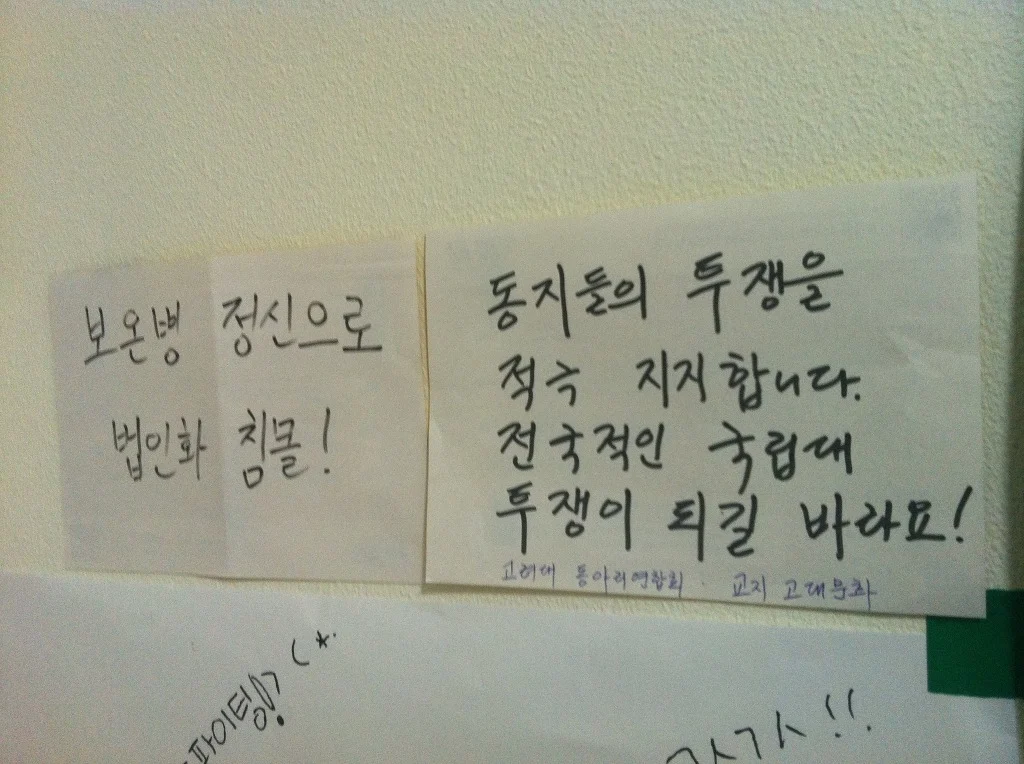 보온병 정신으로
법인화 침몰!
동지들의 투쟁을
적극 지지합니다.
전국적인 국립대
투쟁이 되길 바라요!
고려대 동아리연합회 · 교지 고대문화
파이팅!? (*·